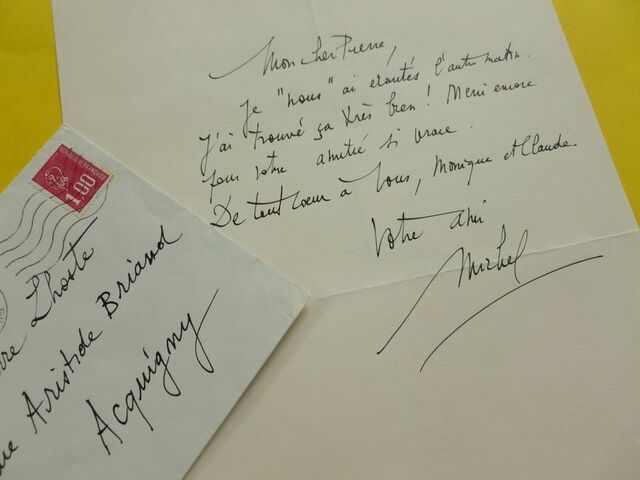 Mon cher Pierre,
Je "nous" ai écoutés l'autre matin.
J'ai trouvé ça très bien ! Merci encore
pour votre amitié si vraie.
De tout cœur à vous, Monique et Claude.
Votre ami
Michel
1.00
Lhoste
Aristide Briand
Acquigny